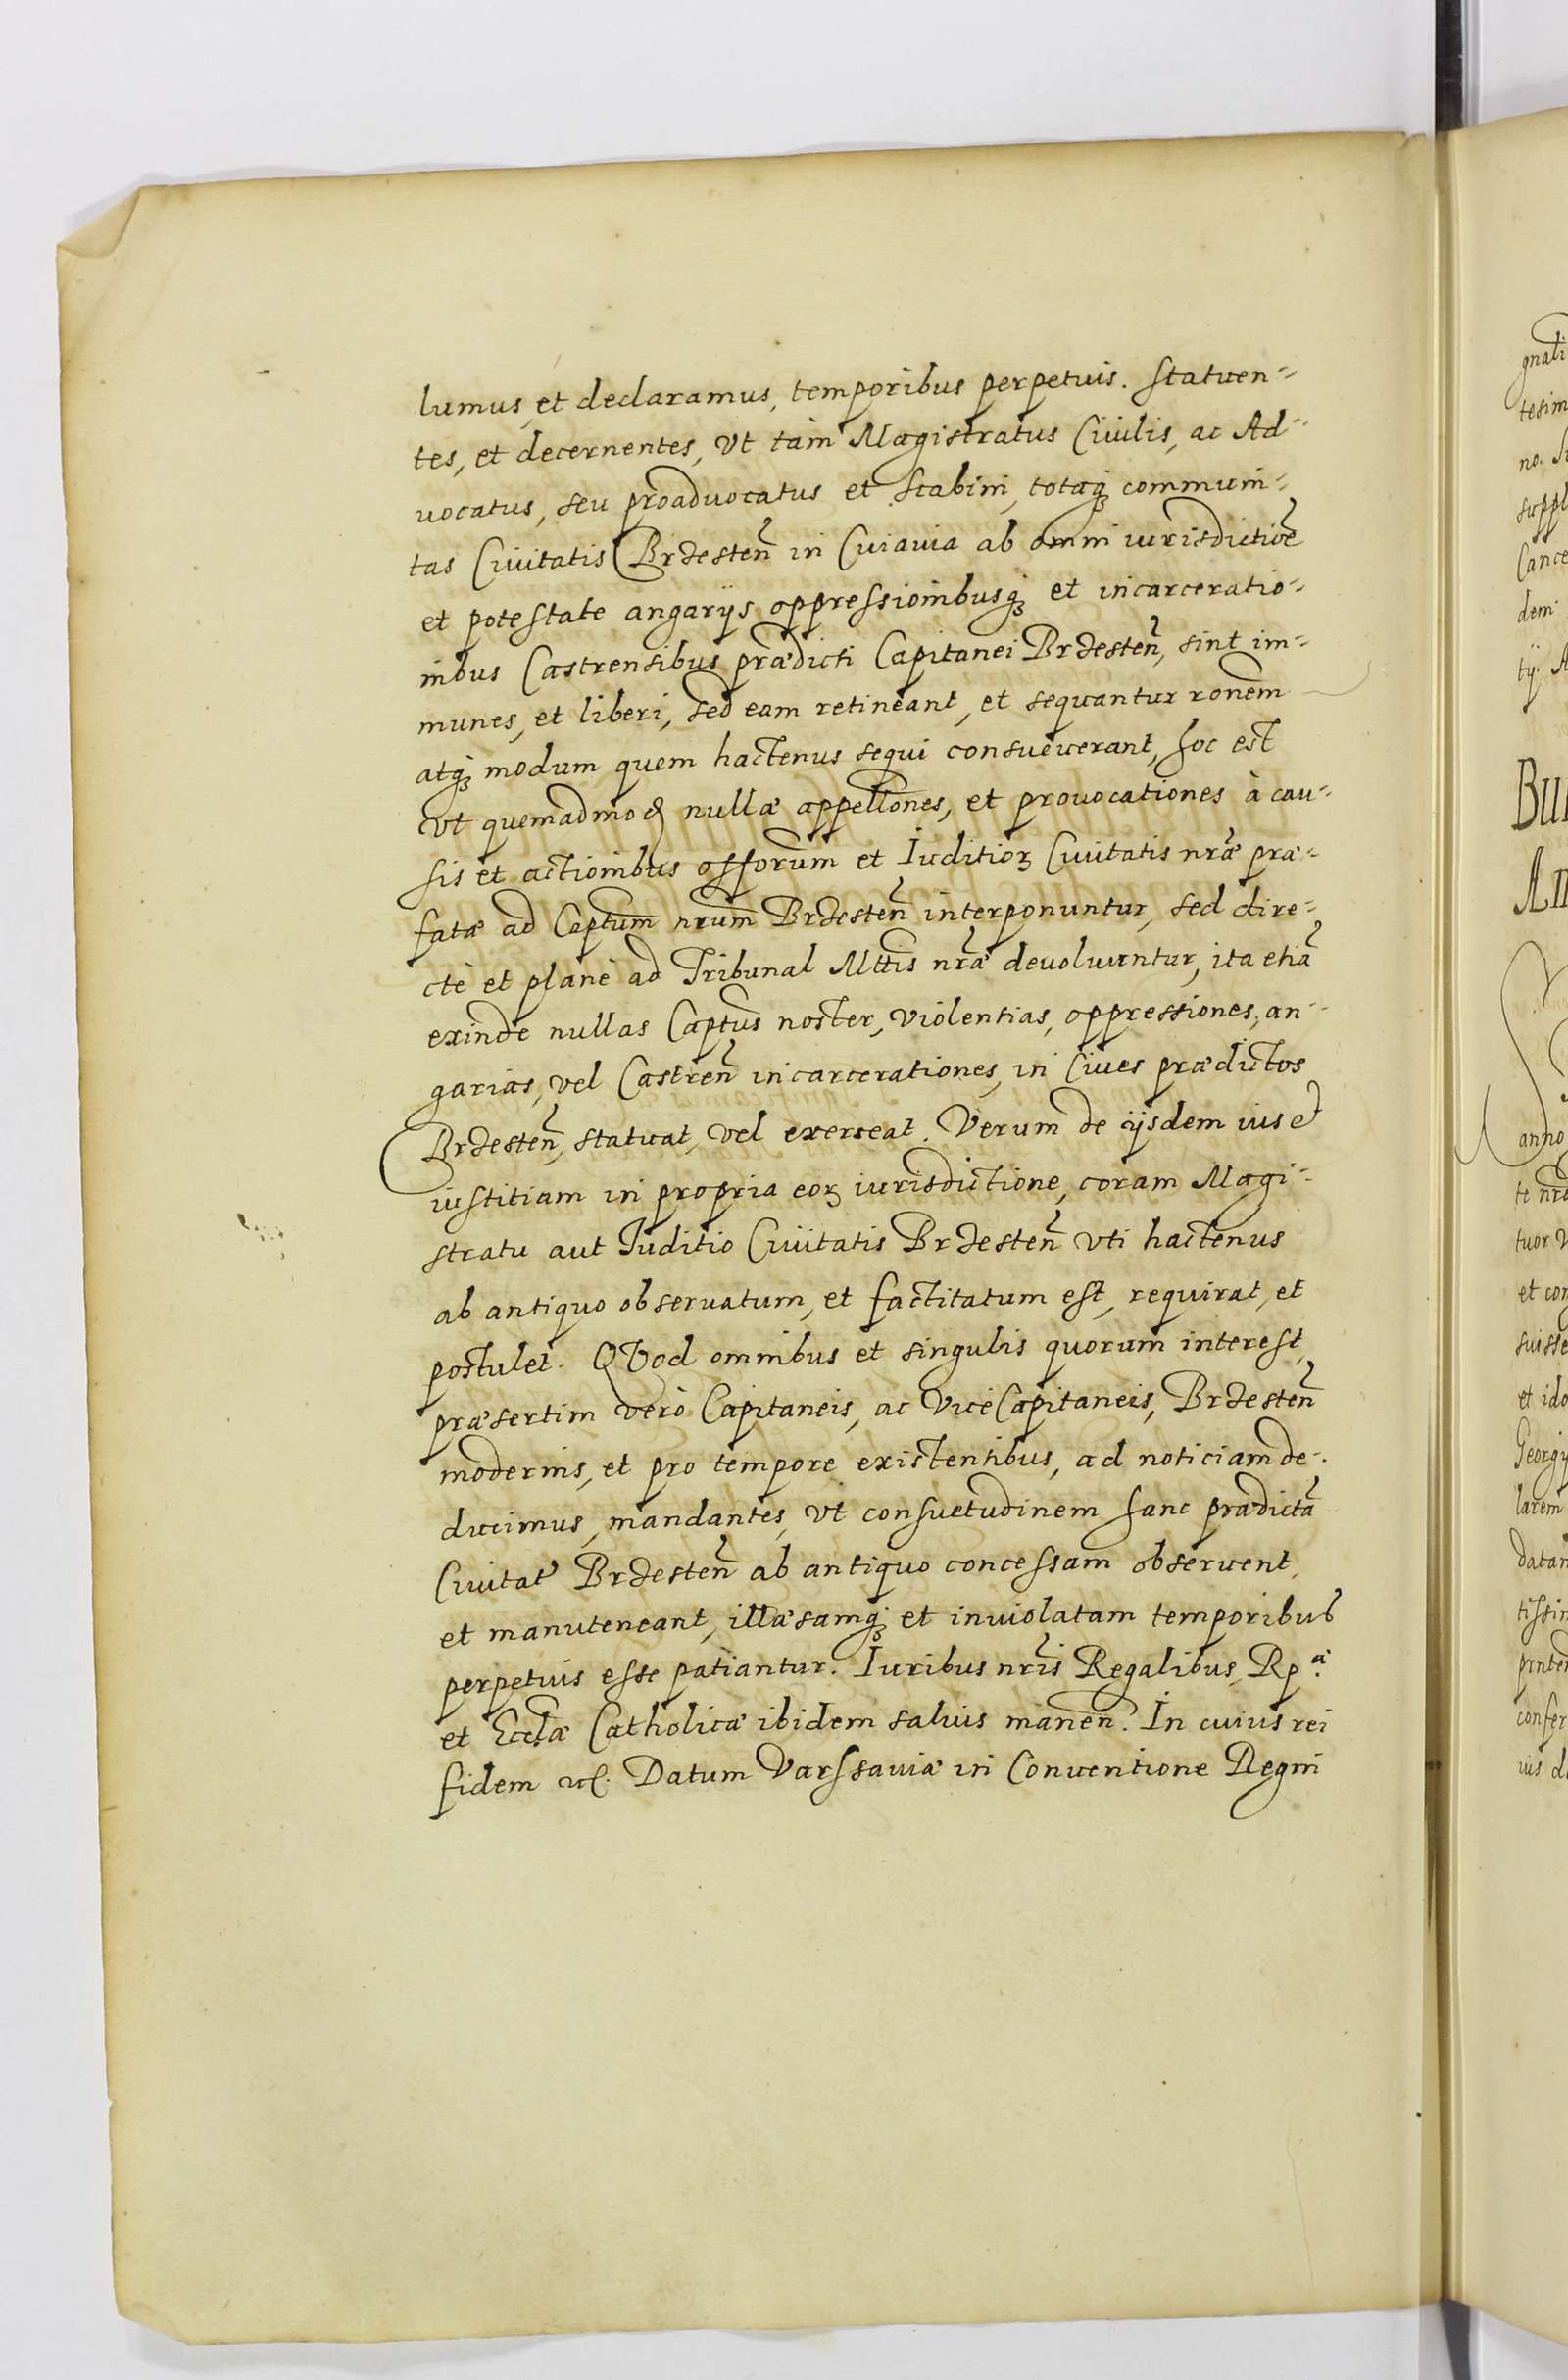 lumus, et declaramus, temporibus perpetuis. Statuen-
tes, et decernentes, Vt tam Magistratus Ciuilis, ac Ad-
uocatus, seu proaduocatus et Scabini, totaqȝ communi-
tas Ciuitatis Brzesteñ in Cuiauia ab omni iurisdictioẽ
et potestate angarijs oppressionibusqȝ et incarceratio-
nibus Castrensibus prædicti Capitanei Brzesteñ, sint im-
munes, et liberi, sed eam retineant, et sequantur rõnem
atqȝ modum quem hactenus sequi consueuerant, hoc est
Vt quemadmoꝺ nullæ appellões, et prouocationes à cau-
sis et actionibus offorũm et Iuditioꝝ Ciuitatis nrãe præ-
fatæ ad Captũm nrũm Brzesteñ interponuntur, sed dire-
ctè et planè ad Tribunal Mttis nrãe deuoluuntur, ita etiã
exinde nullas Captũs noster, Violentias, oppressiones, an-
garias, vel Castreñ incarcerationes, in Ciues prædictos
Brzesteñ, statuat, vel exerceat. Verum de ijsdem ius et
iustitiam in propria eoꝝ iurisdictione, coram Magi-
stratu aut Iuditio Ciuitatis Brzesteñ vti hactenus
ab antiquo obseruatum, et factitatum est, requirat, et
postulet. QVod omnibus et singulis quorum interest,
præsertim verò Capitaneis, ac ViceCapitaneis, Brzesteñ
modernis, et pro tempore existentibus, ad noticiam de-
ducimus, mandantes, Vt consuetudinem hanc prædictã
Ciuitat Brzesteñ ab antiquo concessam obseruent,
et manuteneant, illæsamqȝ et inuiolatam temporibus
perpetuis esse patiantur. Iuribus nrĩs Regalibus, Rpᵃ.
et Eccłæ Catholicæ ibidem saluis maneñ. In cuius rei
fidem etc. Datum Varssauiæ in Conuentione Regni